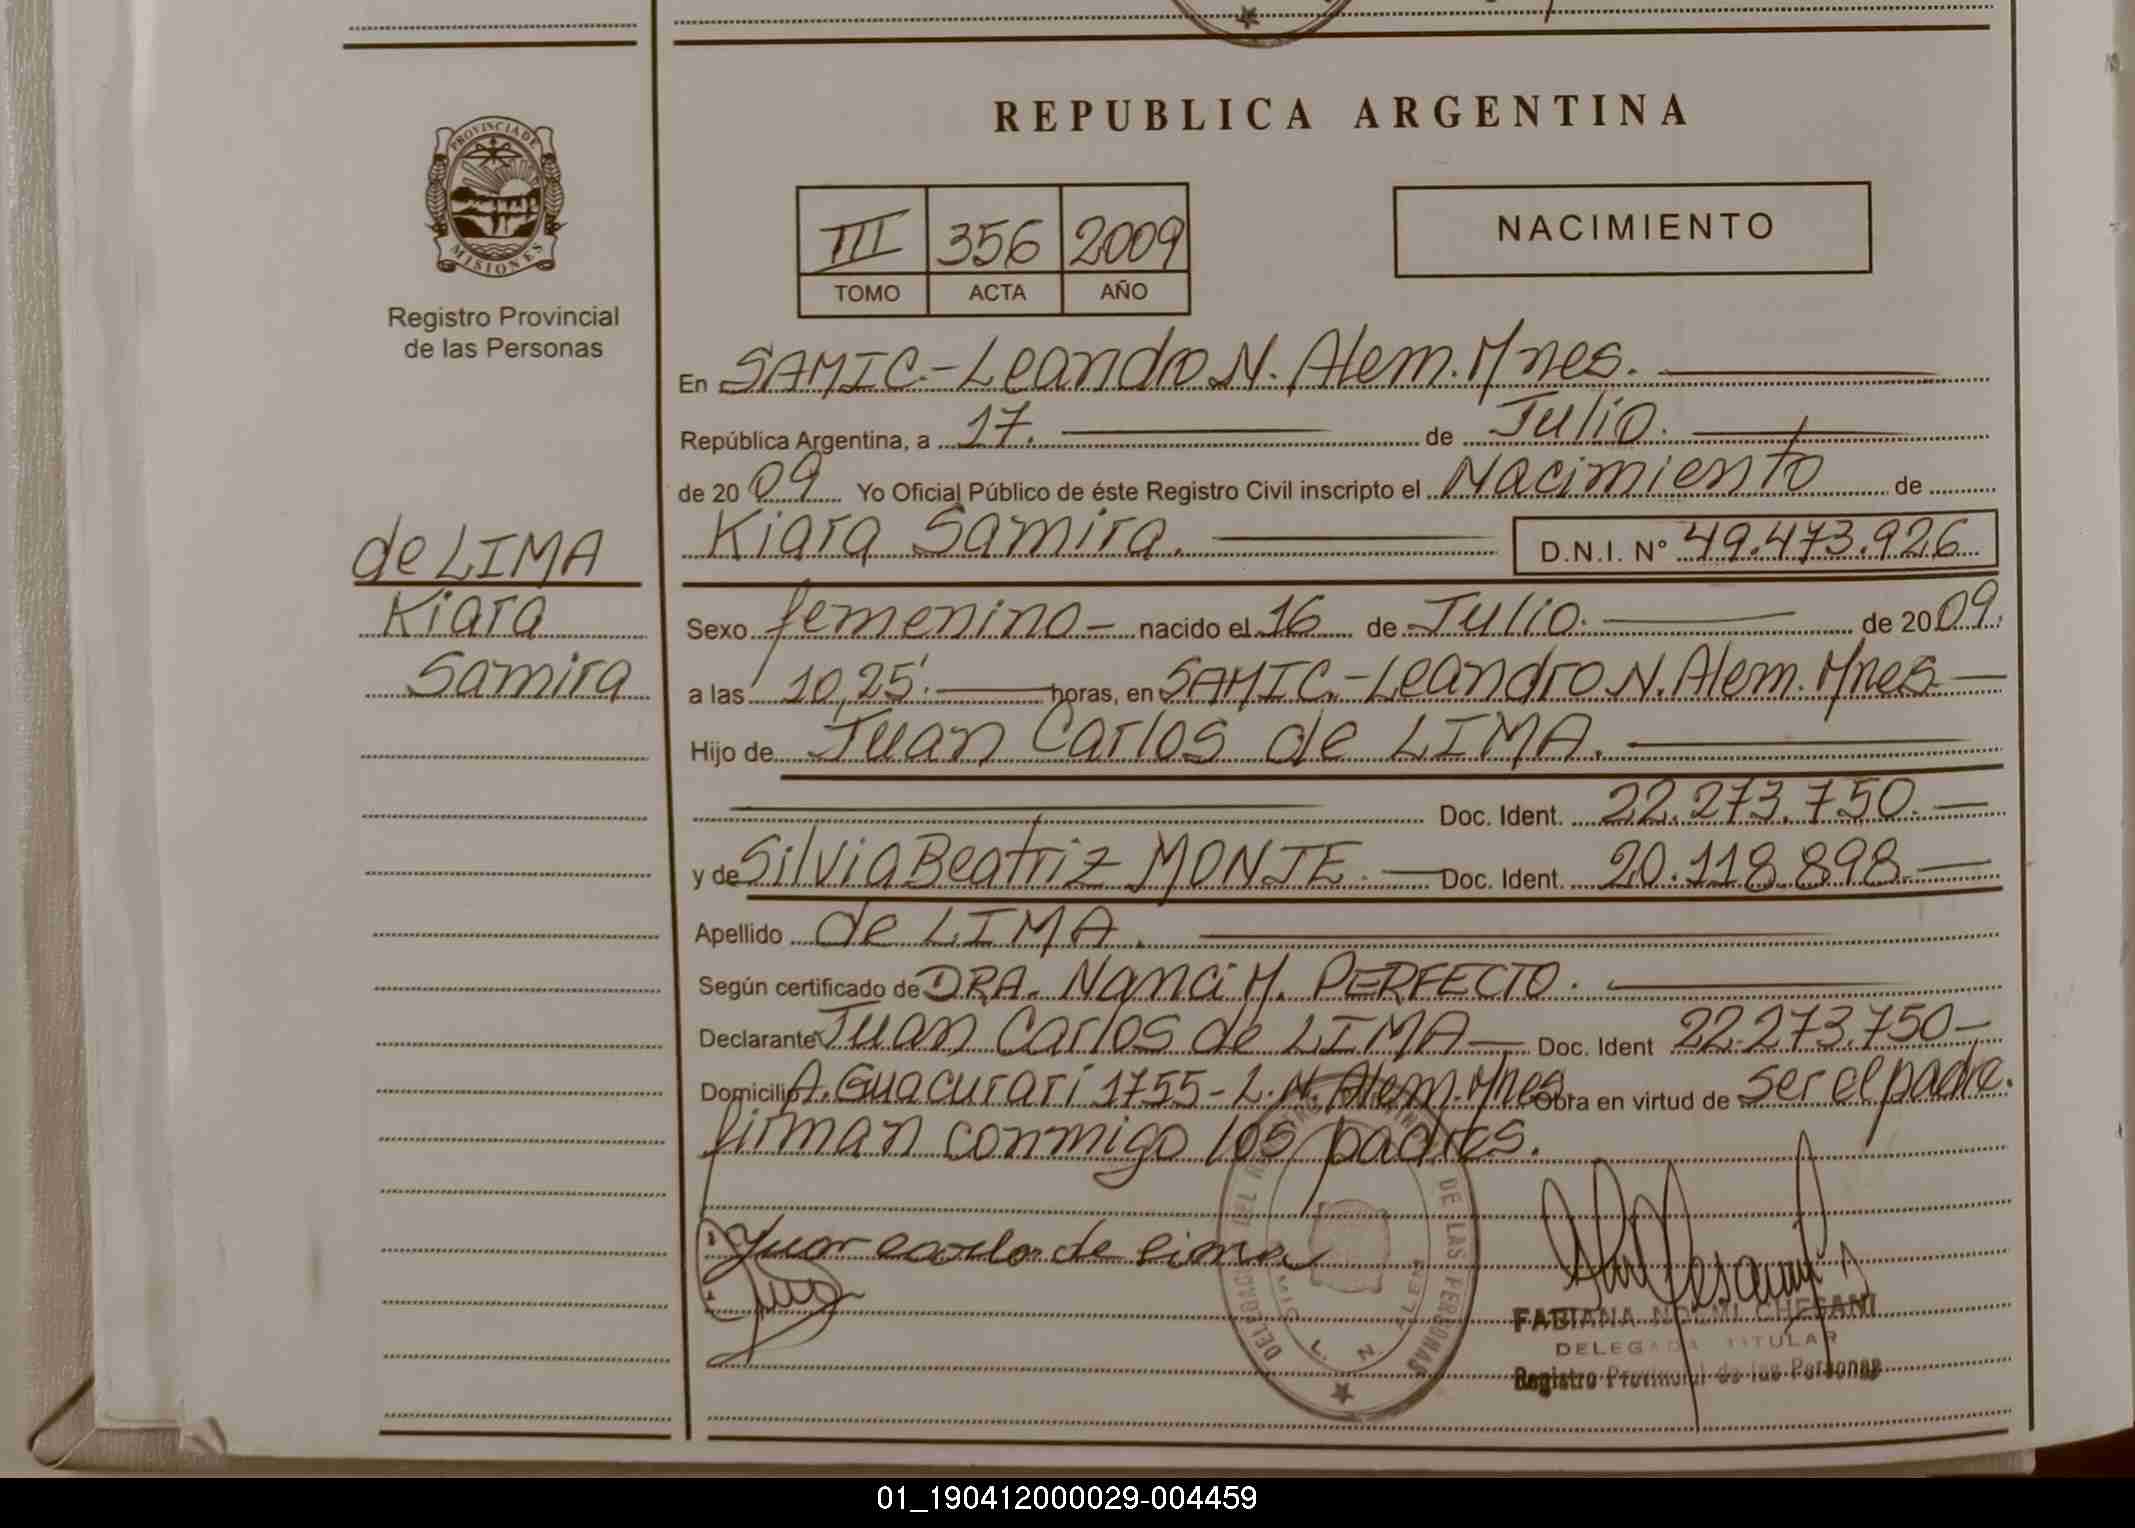 REPUBLICA ARGENTINA
PROVINCIA DE
MISIONES
Registro Provincial
de las Personas
III 356 2009
TOMO ACTA AÑO
NACIMIENTO
En SAMIC.-Leandro N. Alem. Mnes.
República Argentina, a 17. de Julio.
de 2009 Yo Oficial Público de éste Registro Civil inscripto el Nacimiento de
Kiara Samira. D.N.I. N° 49.473.926
de LIMA
Kiara
Samira
Sexo femenino - nacido el 16 de Julio. de 2009.
a las 10,25'. horas, en SAMIC.-Leandro N. Alem. Mnes
Hijo de Juan Carlos de LIMA.
Doc. Ident. 22.273.750.
y de Silvia Beatriz MONJE. Doc. Ident. 20.118.898.
Apellido de LIMA.
Según certificado de DRA. Nanci M. PERFECTO.
Declarante Juan Carlos de LIMA Doc. Ident 22.273.750
Domicilio A. Guacurari 1755 - L.N. Alem. Mnes. Obra en virtud de ser el padre.
firman conmigo los padres.
DELEGACION DEL REGISTRO DE LAS PERSONAS
L. N. ALEM
FABIANA NOEMI CHESANI
DELEGADA TITULAR
Registro Provincial de las Personas
01_190412000029-004459